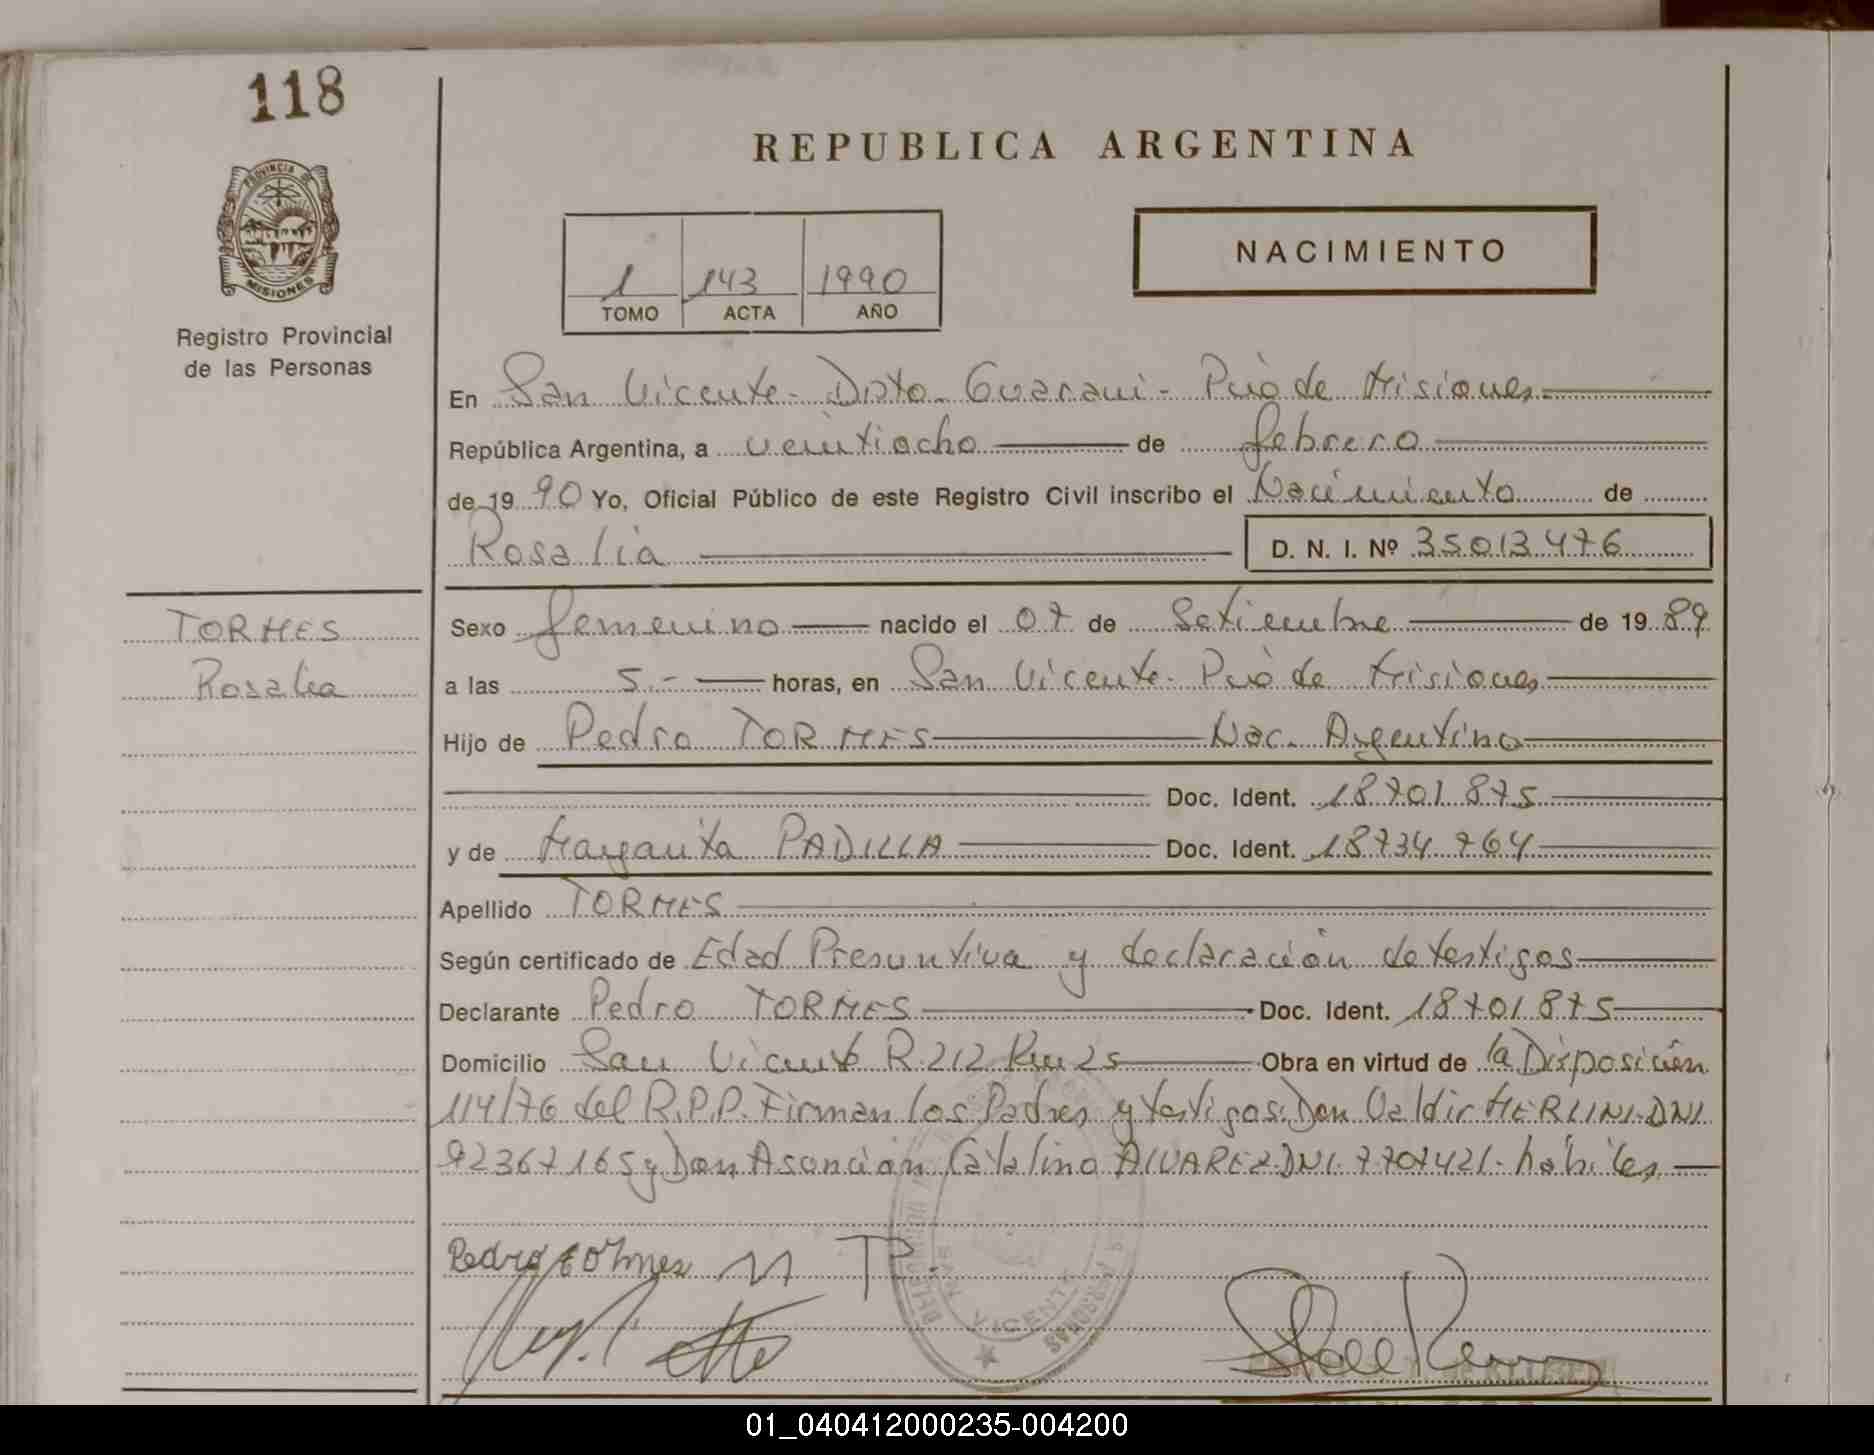 118
REPUBLICA ARGENTINA
PROVINCIA DE
MISIONES
Registro Provincial
de las Personas
NACIMIENTO
1 143 1990
TOMO ACTA AÑO
En San Vicente - Dpto. Guaraní - Pció de Misiones
República Argentina, a veintiocho de febrero
de 1990 Yo, Oficial Público de este Registro Civil inscribo el Nacimiento de
Rosalia D. N. I. Nº 35013476
TORMES
Rosalia
Sexo femenino nacido el 07 de Setiembre de 1989
a las 5.- horas, en San Vicente - Pció de Misiones
Hijo de Pedro TORMES Nac. Argentino
Doc. Ident. 18701875
y de Margarita PADILLA Doc. Ident. 18734764
Apellido TORMES
Según certificado de Edad Presuntiva y declaración de testigos
Declarante Pedro TORMES Doc. Ident. 18701875
Domicilio San Vicente R.212 Km 25 Obra en virtud de la Disposición
114/76 del R.P.P. Firman los Padres y testigos: Don Valdir MERLINI DNI
92367165 y Don Asunción Catalino ALVAREZ DNI. 7707421- hábiles
Pedro tormes M P
SAN VICENTE
PERSONAS
01_040412000235-004200